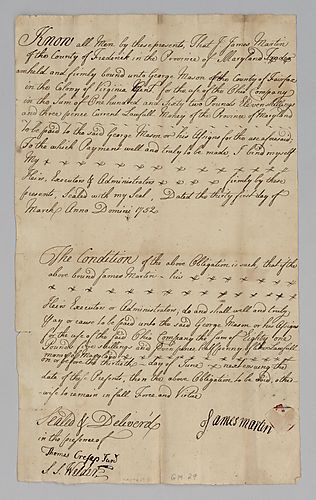 Know all Men by these presents, That I James Martin
of the County of Frederick in the Province of Maryland
am held and firmly bound unto George Mason of the County of Fairfax
in the Colony of Virginia Gent for the use of the Ohio Company
in the Sum of One hundred and Sixty two Pounds Eleven Shillings
and three pence Current Lawfull Money of the Province of Maryland
to be paid to the said George Mason or his Assigns for the use aforesaid
To the which Payment well and truly to be made I bind myself
My
Heirs, Executors & Administrators firmly by these
presents, Sealed with my Seal, Dated the thirty first day of
March Anno Domini 1752
The Condition of the above Obligation is such, that if the
above bound James Martin his
Heirs Executors or Administrators, do and shall well and truly
Pay or cause to be paid unto the said George Mason or his Assigns
for the use of the said Ohio Company the Sum of Eighty one
Pounds five Shillings and
money of Maryland
on or before the thirtieth day of June next ensuing the
date of these Presents, then the above Obligation to be Void, other-
wise to remain in full Force and Virtue
Sealed & Deliver'd
in the presence of
James Martin
Thomas Cresap Junr